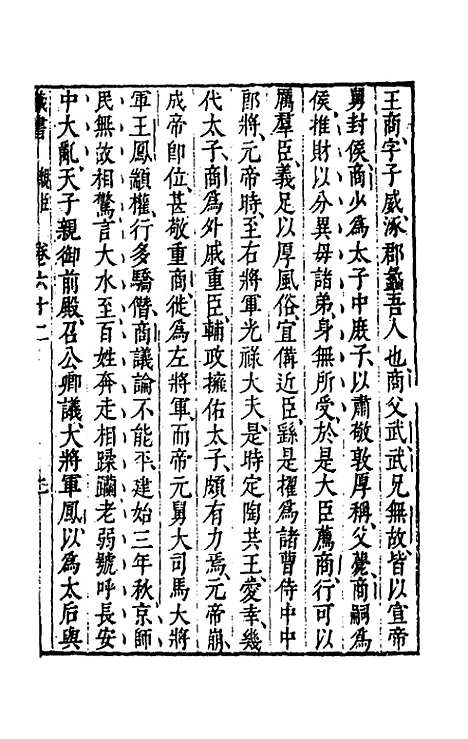 王商字子威涿郡蠡吾人也商父武武兄無故皆以宣帝
舅封侯商少為太子中庶子以肅敬敦厚稱父薨商嗣為
侯推財以分異母諸弟身無所受於是大臣薦商行可以
厲羣臣義足以厚風俗宜備近臣繇是擢為諸曹侍中中
郎將元帝時至右將軍光祿大夫是時定陶共王愛幸幾
代太子商為外戚重臣輔政擁佑太子頗有力焉元帝崩
成帝即位甚敬重商徙為左將軍而帝元舅大司馬大將
軍王鳳顓權行多驕僭商議論不能平建始三年秋京師
民無故相驚言大水至百姓奔走相蹂躪老弱號呼長安
中大亂天子親御前殿召公卿議大將軍鳳以為太后與
藏書 卷六十二